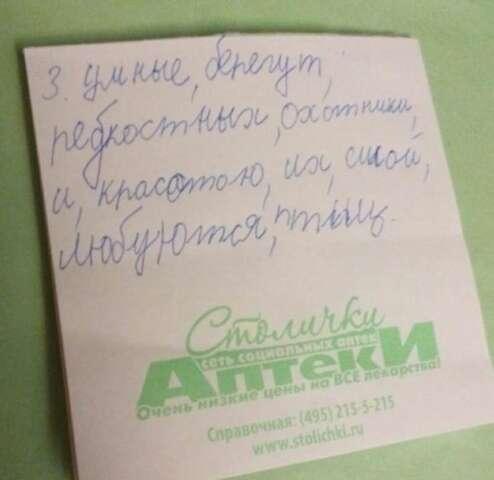 3. умные, берегут,
редкостных, охотники,
и, красотою, их, силой,
любуются, птиц.
Столички
сеть социальных аптек
АптекИ
Очень низкие цены на ВСЕ лекарства!
Справочная: (495) 215-5-215
www.stolichki.ru